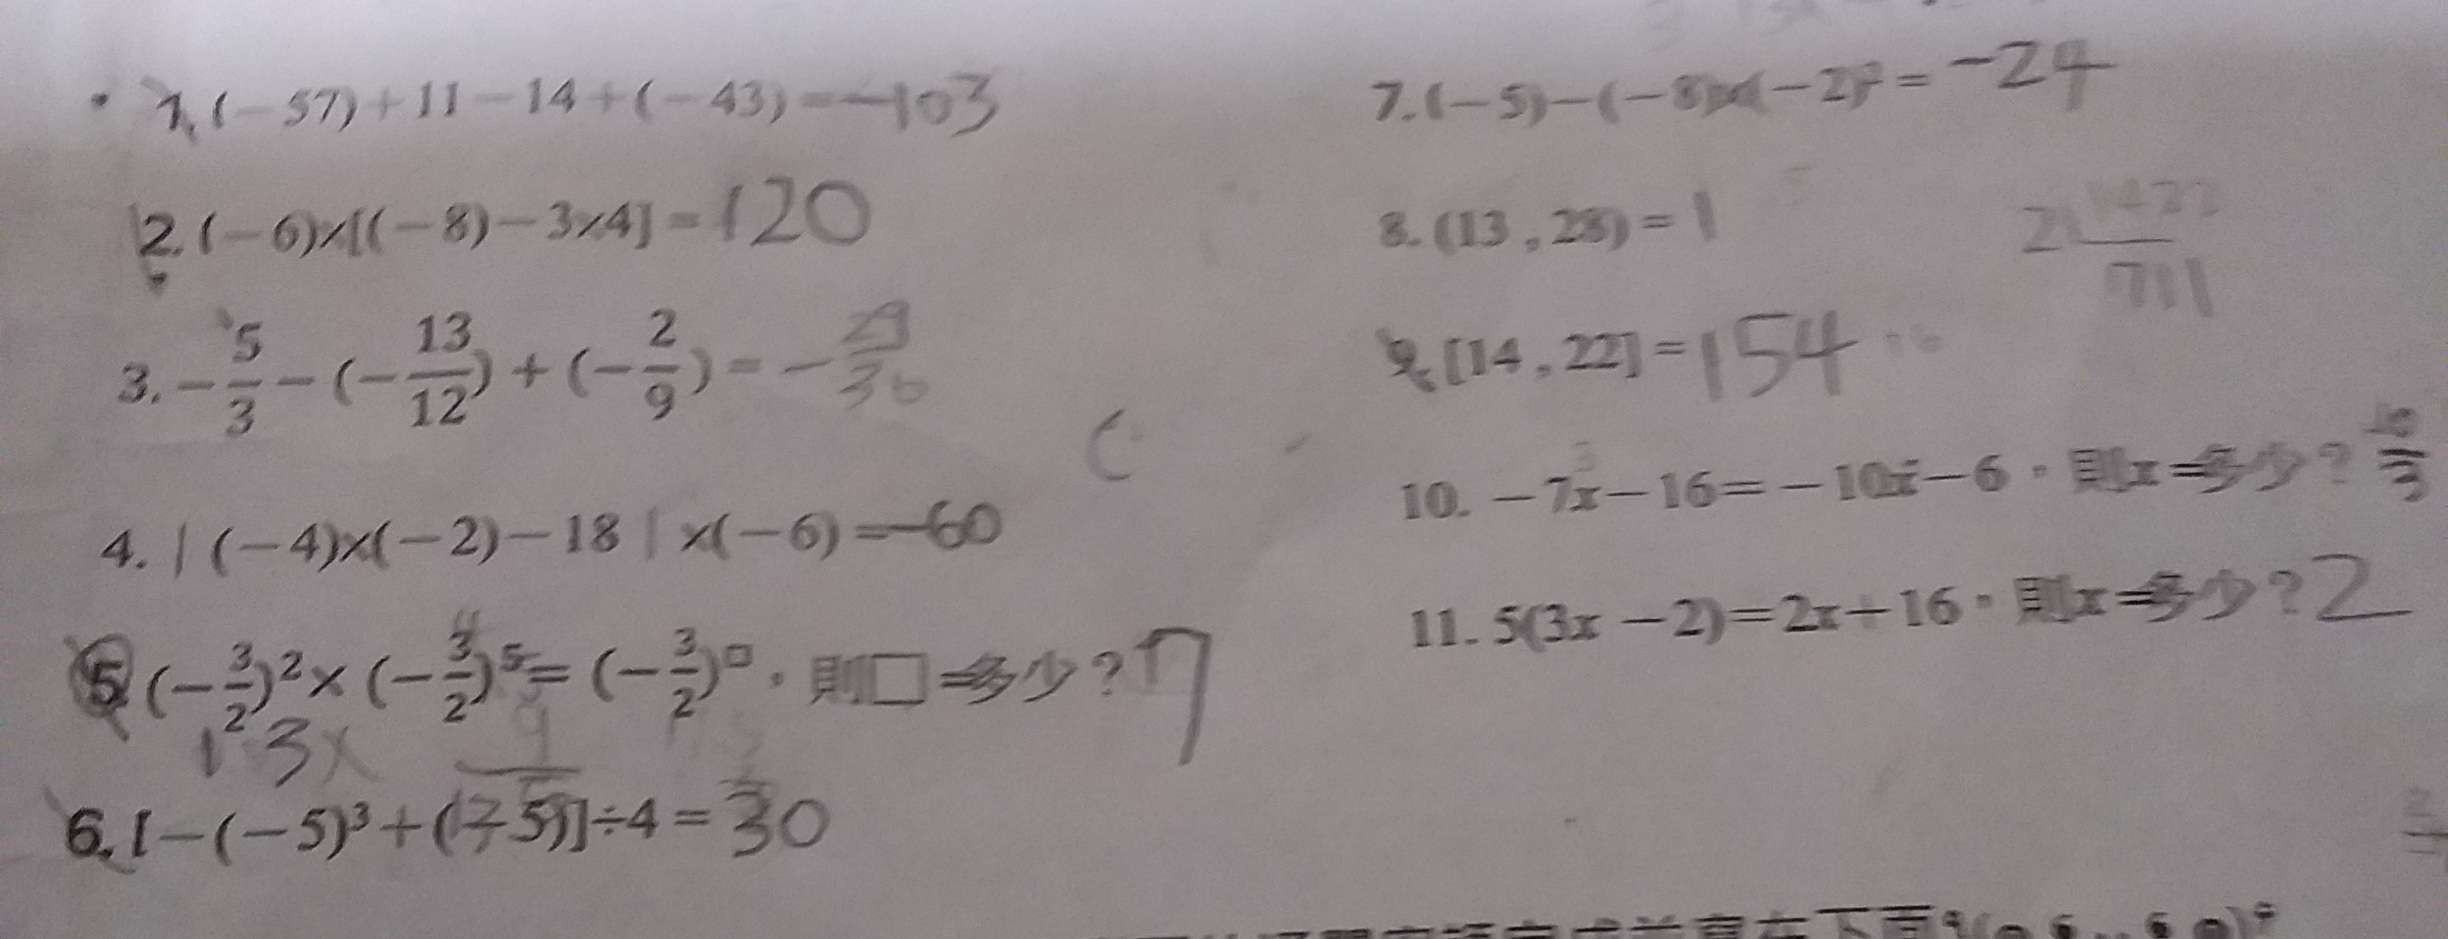 1. (-57)+11-14+(-43)=-103
2. (-6)×[(-8)-3×4]=120
3. -5/3-(-13/12)+(-2/9)=-29/36
4. |(-4)×(-2)-18|×(-6)=-60
5. (-3/2)²×(-3/2)⁵=(-3/2)□,則□=多少?7
13×
6. [-(-5)³+(-5)]÷4=30
7. (-5)-(-8)×(-2)²=-24
8. (13,28)=1
9. [14,22]=154
2 14 22
7 11
10. -7x-16=-10x-6,則x=多少?10/3
11. 5(3x-2)=2x+16,則x=多少?2